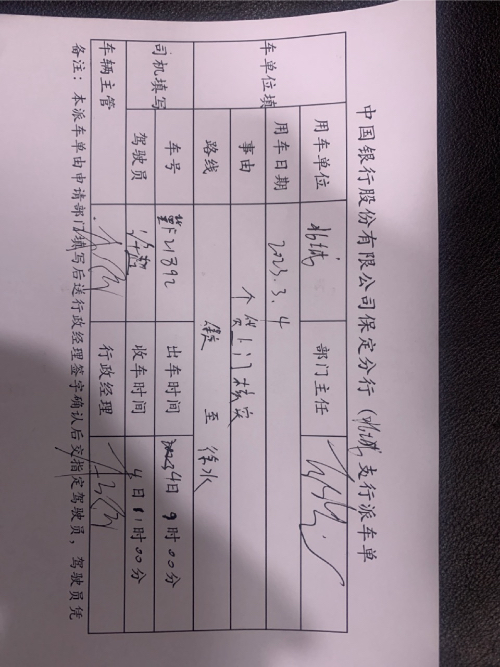 中国银行股份有限公司保定分行（ 支行派车单
车单位填
用车单位 部门主任
用车日期 2023.3.4
事由 个贷上门核实
路线 至 徐水
司机填写
车号 F21392 出车时间 4日9时00分
驾驶员 收车时间 4日11时00分
车辆主管 行政经理
备注：本派车单由申请部门填写后送行政经理签字确认后交指定驾驶员，驾驶员凭